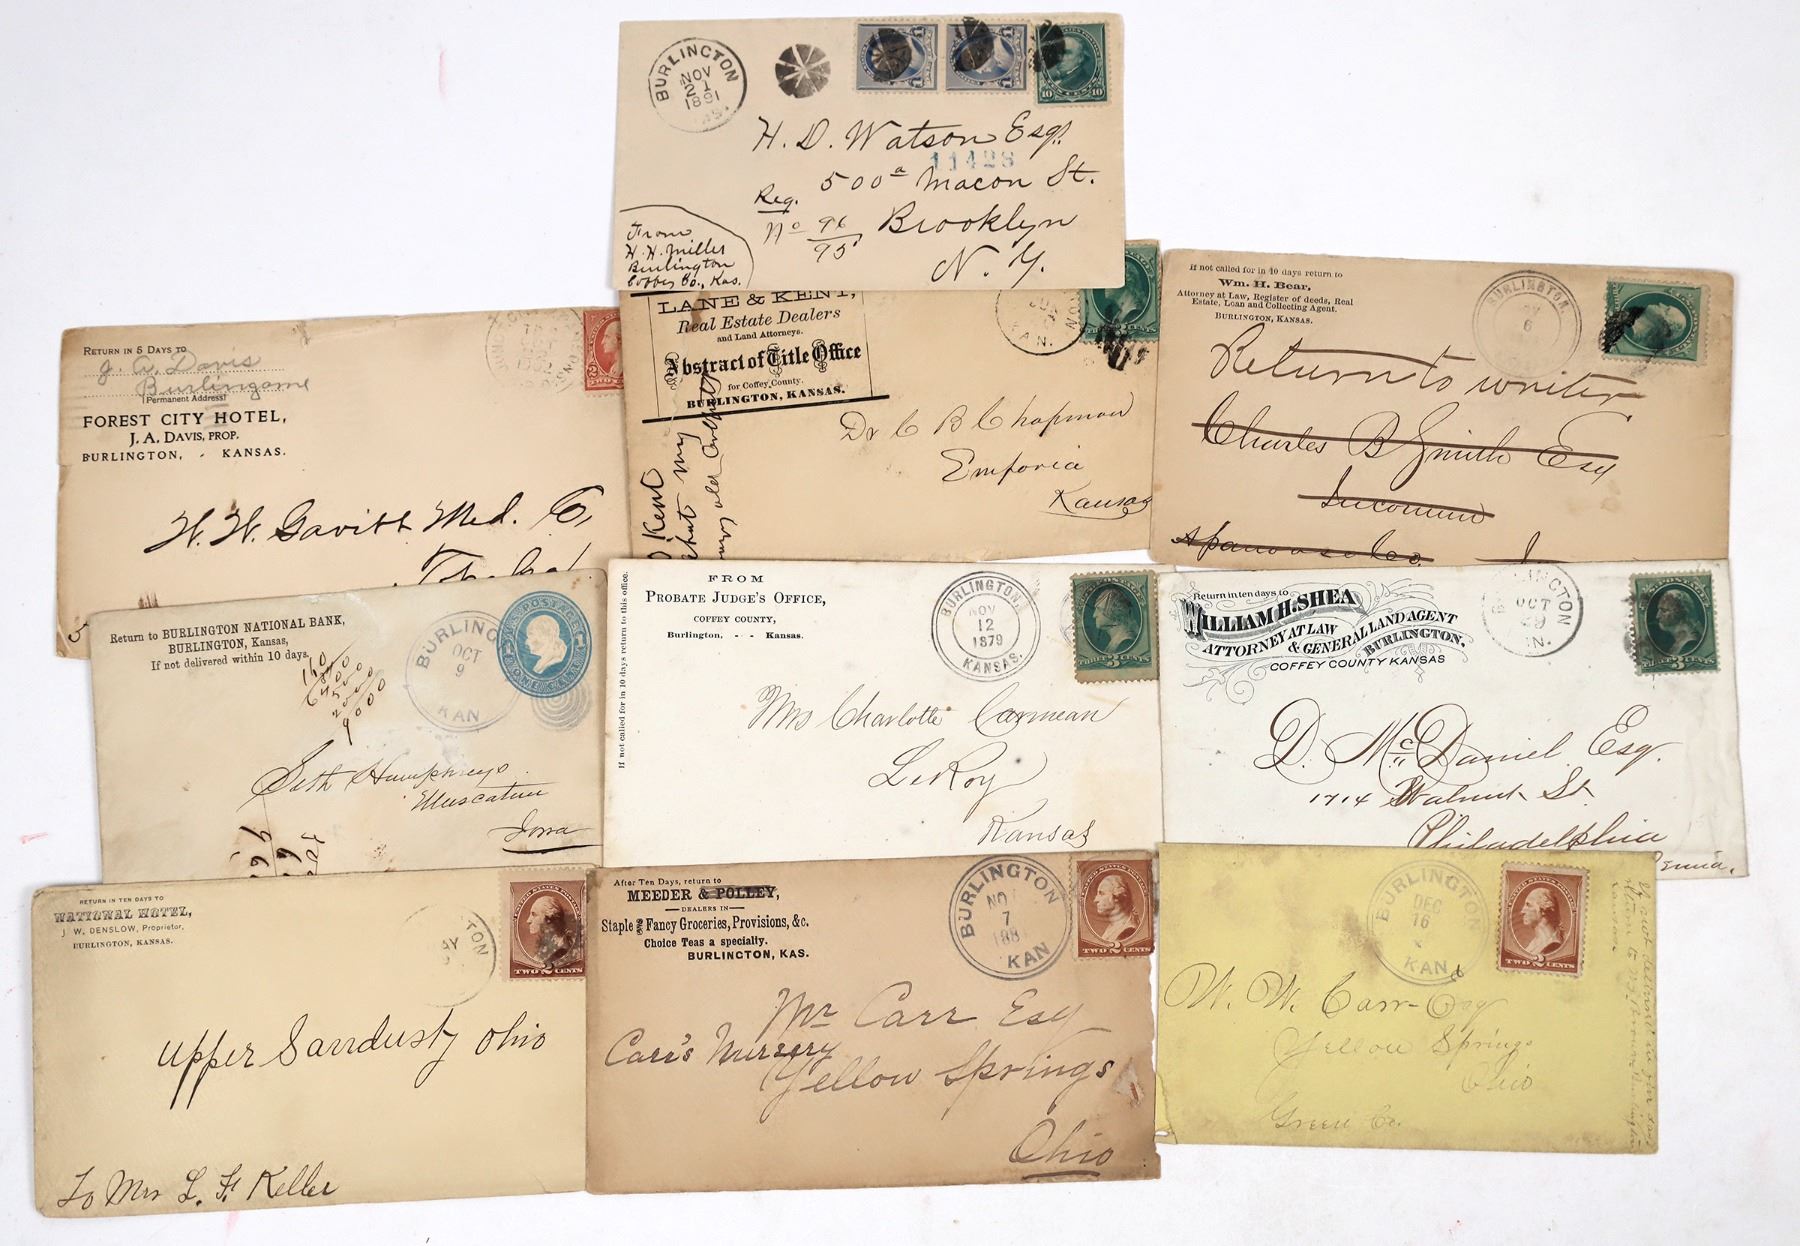 BURLINGTON
NOV
21
1891
KAS.
1
1
10 10
H. D. Watson Esq.
11428
500a Macon St.
Reg.
No 96
95
Brooklyn
N. Y.
From
H. H. Miller
Burlington
Coffey Co., Kas.
RETURN IN 5 DAYS TO
J. A. Davis
Burlingame
(Permanent Address)
FOREST CITY HOTEL,
J. A. DAVIS, PROP.
BURLINGTON, - KANSAS.
2
W. W. Gavitt Med. Co,
LANE & KENT,
Real Estate Dealers
and Land Attorneys.
Abstract of Title Office
for Coffey County.
BURLINGTON, KANSAS.
KAN.
Dr C B Chapman
Emporia
Kansas
Kent
my
old
If not called for in 10 days return to
Wm. H. Bear,
Attorney at Law, Register of deeds, Real
Estate, Loan and Collecting Agent.
BURLINGTON, KANSAS.
BURLINGTON,
6
Return to writer
Charles B Smith Esq
Return to BURLINGTON NATIONAL BANK,
BURLINGTON, Kansas,
If not delivered within 10 days.
BURLING
OCT
9
KAN
U.S. POSTAGE
1 1
ONE CENT
Seth Humphreys
Muscatine
Iowa
If not called for in 10 days return to this office.
FROM
PROBATE JUDGE'S OFFICE,
COFFEY COUNTY,
Burlington, - - Kansas.
BURLINGTON,
NOV
12
1879
KANSAS.
THREE 3 CENTS
Mrs Charlotte Carmean
LeRoy
Kansas
Return in ten days to
WILLIAM H. SHEA
ATTORNEY AT LAW
& GENERAL LAND AGENT
BURLINGTON.
COFFEY COUNTY KANSAS
INGTON
OCT
29
N.
THREE 3 CENTS
D. McDaniel Esq.
1714 Walnut St.
Philadelphia
RETURN IN TEN DAYS TO
NATIONAL HOTEL,
J. W. DENSLOW, Proprietor,
BURLINGTON, KANSAS.
TON
AY
TWO 2 CENTS
Upper Sandusty Ohio
To Mrs L. F. Keller
After Ten Days, return to
MEEDER & POLLEY,
DEALERS IN
Staple and Fancy Groceries, Provisions, &c.
Choice Teas a specialty.
BURLINGTON, KAS.
BURLINGTON
NO
7
188
KAN
TWO 2 CENTS
Mr Carr Esq
Carr's Nursery
Yellow Springs
Ohio
BURLINGTON
DEC
16
KAN
UNITED STATES POSTAGE
TWO 2 CENTS
W. W. Carr Esq
Yellow Springs
Ohio
Green Co.